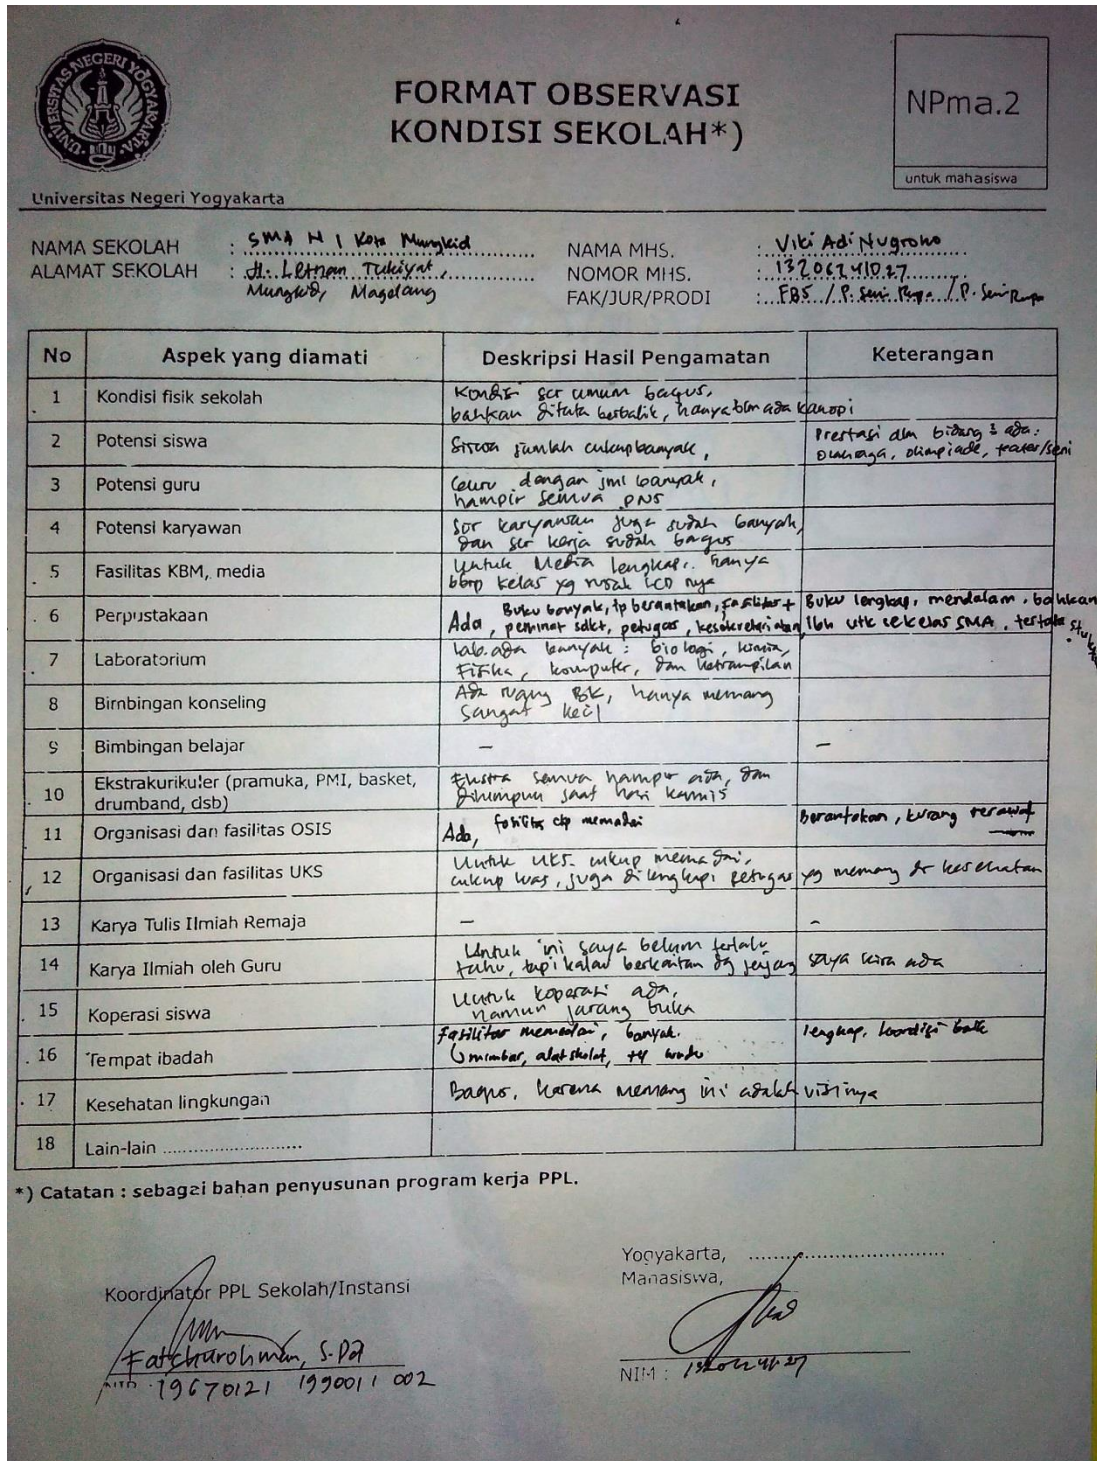 UNIVERSITAS NEGERI YOGYAKARTA
FORMAT OBSERVASI
KONDISI SEKOLAH*)
NPma.2
untuk mahasiswa
Universitas Negeri Yogyakarta
NAMA SEKOLAH : SMA N 1 Kota Mungkid
ALAMAT SEKOLAH : Jl. Letnan Tukiyat,
Mungkid, Magelang
NAMA MHS. : Viki Adi Nugroho
NOMOR MHS. : 13206241027
FAK/JUR/PRODI : FBS / P. Seni Rupa / P. Seni Rupa
No Aspek yang diamati Deskripsi Hasil Pengamatan Keterangan
1 Kondisi fisik sekolah Kondisi scr umum bagus,
bahkan ditata berbalik, hanya blm ada kanopi
2 Potensi siswa Siswa jumlah cukup banyak, Prestasi dlm bidang ada:
olahraga, olimpiade, teater/seni
3 Potensi guru Guru dengan jml banyak,
hampir semua PNS
4 Potensi karyawan Scr karyawan juga sudah banyak,
dan scr kerja sudah bagus
5 Fasilitas KBM, media Untuk Media lengkap, hanya
bbrp kelas yg rusak LCD nya
6 Perpustakaan Ada, Buku banyak, tp berantakan, fasilitas +
peminat sdkt, petugas, kesekretariatan
Buku lengkap, mendalam, bahkan
lbh utk sekelas SMA, tertata
7 Laboratorium Lab. ada banyak : biologi, kimia,
Fisika, komputer, dan ketrampilan
8 Bimbingan konseling Ada ruang BK, hanya memang
sangat kecil
9 Bimbingan belajar – –
10 Ekstrakurikuler (pramuka, PMI, basket,
drumband, dsb)
Ekstra semua hampir ada, dan
dihimpun saat hari kamis
11 Organisasi dan fasilitas OSIS Ada, fasilitas ckp memadai Berantakan, kurang terawat
12 Organisasi dan fasilitas UKS Untuk UKS cukup memadai,
cukup luas, juga dilengkapi petugas yg memang dr kesehatan
13 Karya Tulis Ilmiah Remaja – -
14 Karya Ilmiah oleh Guru Untuk ini saya belum terlalu
tahu, tapi kalau berkaitan dg jenjang saya kira ada
15 Koperasi siswa Untuk koperasi ada,
namun jarang buka
16 Tempat ibadah Fasilitas memadai, banyak. lengkap, kondisi baik
mimbar, alat sholat, wudu
17 Kesehatan lingkungan Bagus, karena memang ini adalah visinya
18 Lain-lain ..........................
*) Catatan : sebagai bahan penyusunan program kerja PPL.
Yogyakarta, ....................................
Koordinator PPL Sekolah/Instansi Mahasiswa,
Fatchurohman, S.Pd
NIP. 19670121 1990011 002
NIM : 13206241027